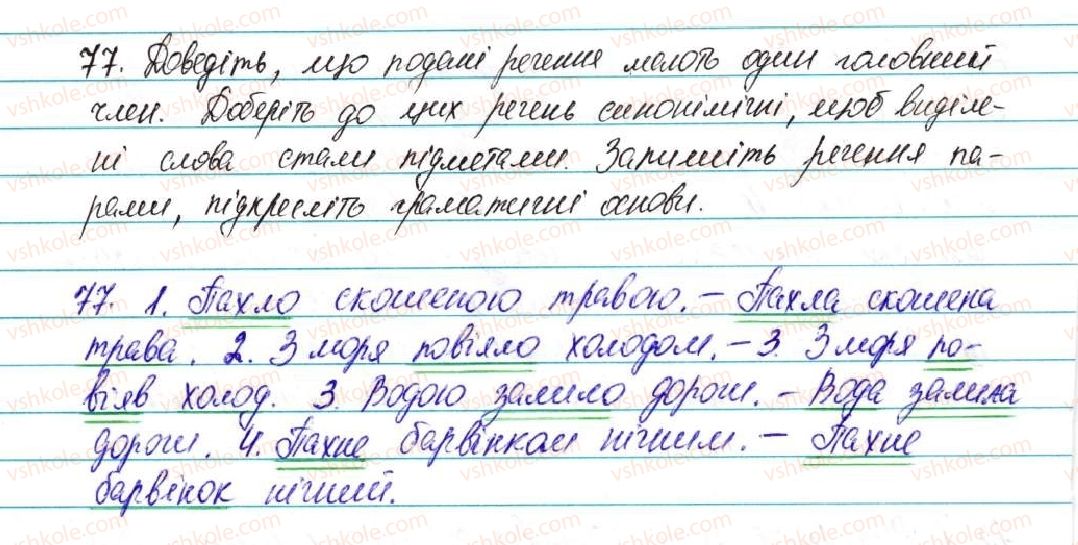 77. Доведіть, що подані речення мають один головний
член. Доберіть до цих речень синонімічні, щоб виділе-
ні слова стали підметами. Запишіть речення па-
рами, підкресліть граматичні основи.
77. 1. Пахло скошеною травою. – Пахла скошена
трава. 2. З моря повіяло холодом. – 3. З моря по-
віяв холод. 3. Водою залило дороги. – Вода залила
дороги. 4. Пахне барвінком нічним. – Пахне
барвінок нічний.